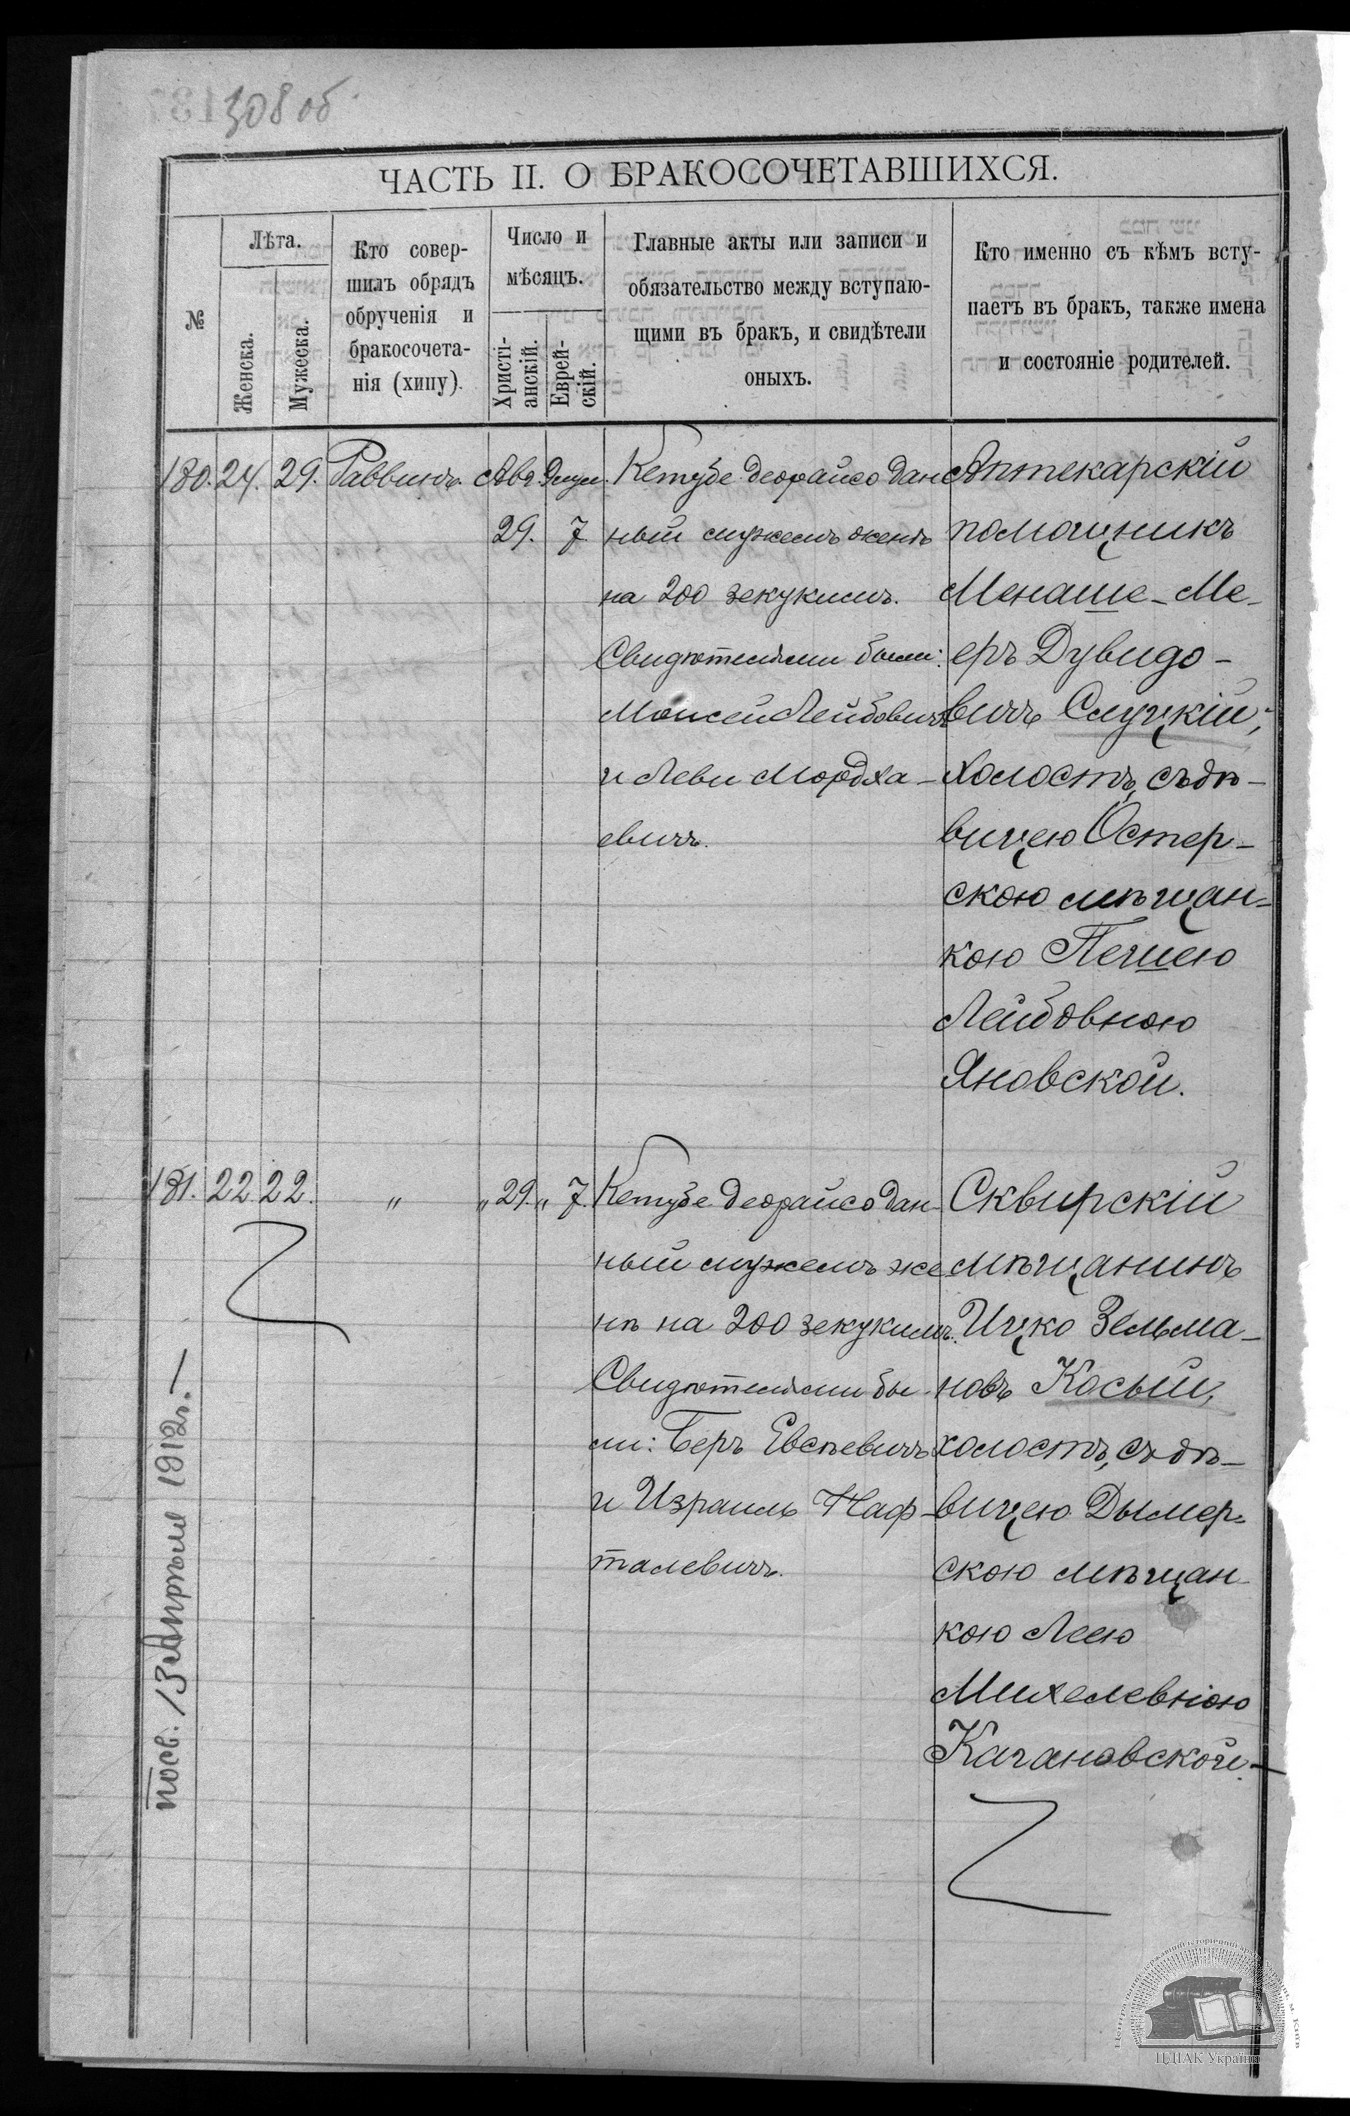 308 об
ЧАСТЬ II. О БРАКОСОЧЕТАВШИХСЯ.
№
Лѣта.
Женска.
Мужеска.
Кто совер-
шилъ обрядъ
обрученія и
бракосочета-
нія (хипу).
Число и
мѣсяцъ.
Христі-
анскій.
Еврей-
скій.
Главные акты или записи и
обязательство между вступаю-
щими въ бракъ, и свидѣтели
оныхъ.
Кто именно съ кѣмъ всту-
паетъ въ бракъ, также имена
и состояніе родителей.
180. 24. 29. Раввинъ. Авг. Элул.
29. 7
Кетубе деорайсо дан
ный мужемъ женѣ
на 200 зекукимъ.
Свидѣтелями были:
Моисей Лейбовичъ
и Леви Мордха-
евичъ.
Аптекарскій
помощникъ
Менаше-Ме-
еръ Дувидо-
вичъ Слуцкій,
холостъ, съ дѣ-
вицею Остер-
скою мѣщан-
кою Пешею
Лейбовною
Яновской.
181. 22 22. " " 29. " 7.
Кетубе деорайсо дан-
ный мужемъ же
нѣ на 200 зекукимъ.
Свидѣтелями бы-
ли: Беръ Евсѣевичъ
и Израиль Наф-
талевичъ.
Сквирскій
мѣщанинъ
Ицко Зельма-
новъ Косый,
холостъ, съ дѣ-
вицею Дымер-
скою мѣщан-
кою Леею
Михелевною
Качановской.
посв. 13 Апрѣля 1912 г.
ЦДІАК України